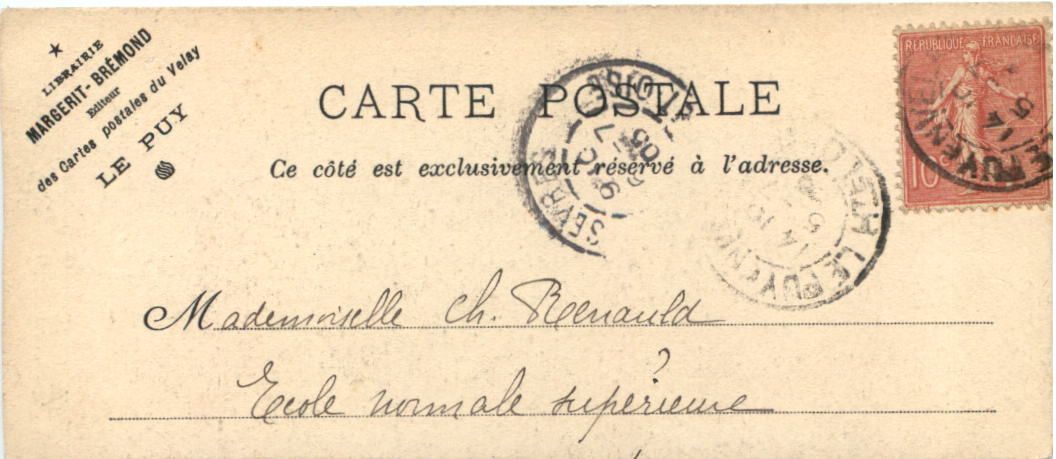 LIBRAIRIE
MARGERIT-BRÉMOND
Editeur
des Cartes postales du Velay
LE PUY
CARTE POSTALE
Ce côté est exclusivement réservé à l'adresse.
RÉPUBLIQUE FRANÇAISE
10
SEVRES
05
LE PUY EN VELAY
14
LE PUY EN VELAY
14
Mademoiselle Ch. Renauld
Ecole normale supérieure